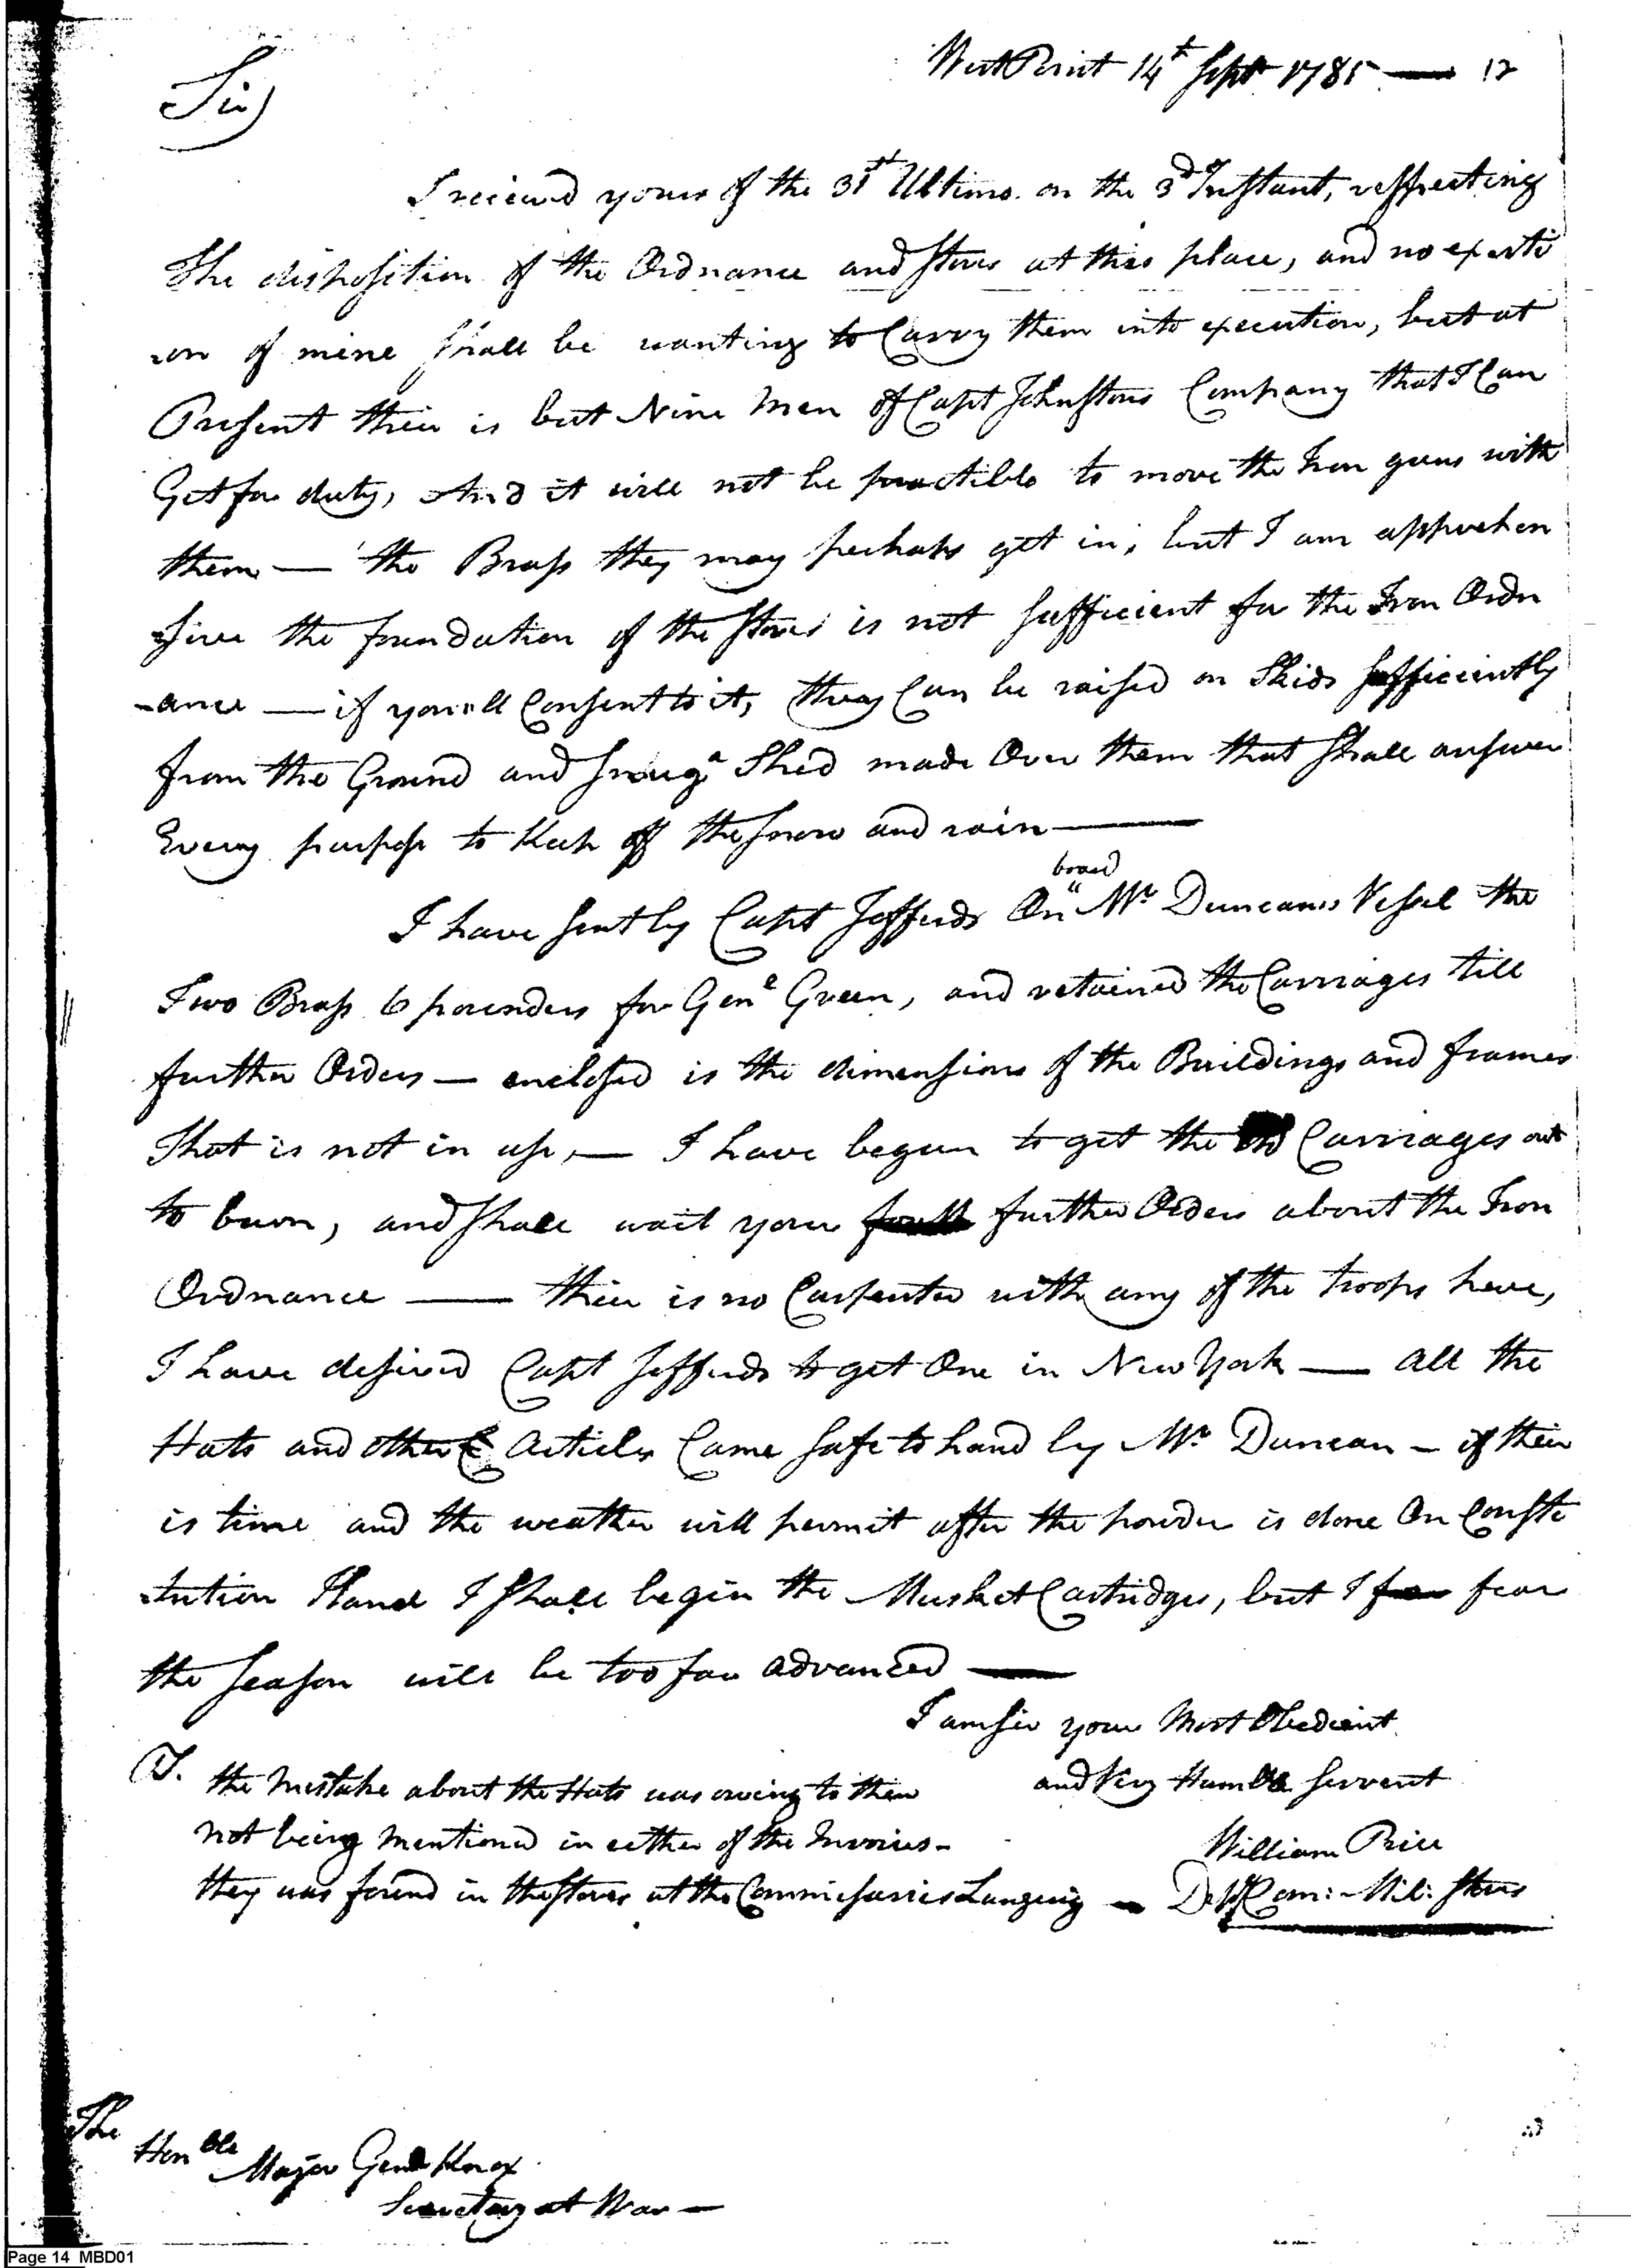 West Point 14th Sept 1785 — 12
Sir,
I recieved yours of the 31st Ultimo. on the 3d Instant, respecting
the disposition of the Ordnance and Stores at this place, and no exerti
on of mine shall be wanting to Carry them into execution, but at
Present their is but Nine Men of Capt Johnstons Company that I Can
Get for duty, And it will not be practible to move the Iron guns with
them — the Brass they may perhaps get in, but I am apprehen
sive the foundation of the Stores is not sufficient for the Iron Ordn
-ance — if you'll Consent to it, they Can be raised on Skids sufficiently
from the Ground and snug a Shed made Over them that shall answer
Every purpose to Keep of the snow and rain —
I have sent by Capt Jeffords On board Mr Duncans Vessel the
Two Brass 6 pounders for Genl Green, and retained the Carriages till
further Orders — enclosed is the dimensions of the Buildings and frames
That is not in use, — I have begun to get the old Carriages out
to burn, and shall wait your further Orders about the Iron
Ordnance — their is no Carpenter with any of the troops here,
I have desired Capt Jeffords to get One in New York — all the
Hats and other Articles Came safe to hand by Mr Duncan — if their
is time and the weather will permit after the powder is done On Consti
tution Island I shall begin the Musket Cartridges, but I fear
the season will be too far advanced —
I am sir your Most Obedient
and Very Humble servent
William Price
Dy Com: Mil: Stores
the Mistake about the Hats was owing to their
not being Mentioned in either of the Invoices —
they was found in the Stores at the Commissaries Langing —
The
Honble
Major Genl Knox
Secretary at War —
Page 14 MBD01